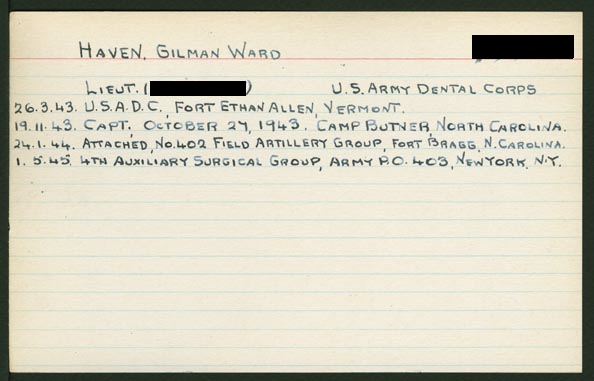 HAVEN, GILMAN WARD
LIEUT. ( ) U.S. ARMY DENTAL CORPS
26.3.43. U.S.A.D.C., FORT ETHAN ALLEN, VERMONT.
19.11.43. CAPT., OCTOBER 27, 1943. CAMP BUTNER, NORTH CAROLINA.
24.1.44. ATTACHED, NO. 402 FIELD ARTILLERY GROUP, FORT BRAGG, N. CAROLINA.
1.5.45. 4TH AUXILIARY SURGICAL GROUP, ARMY P.O. 403, NEW YORK, N.Y.